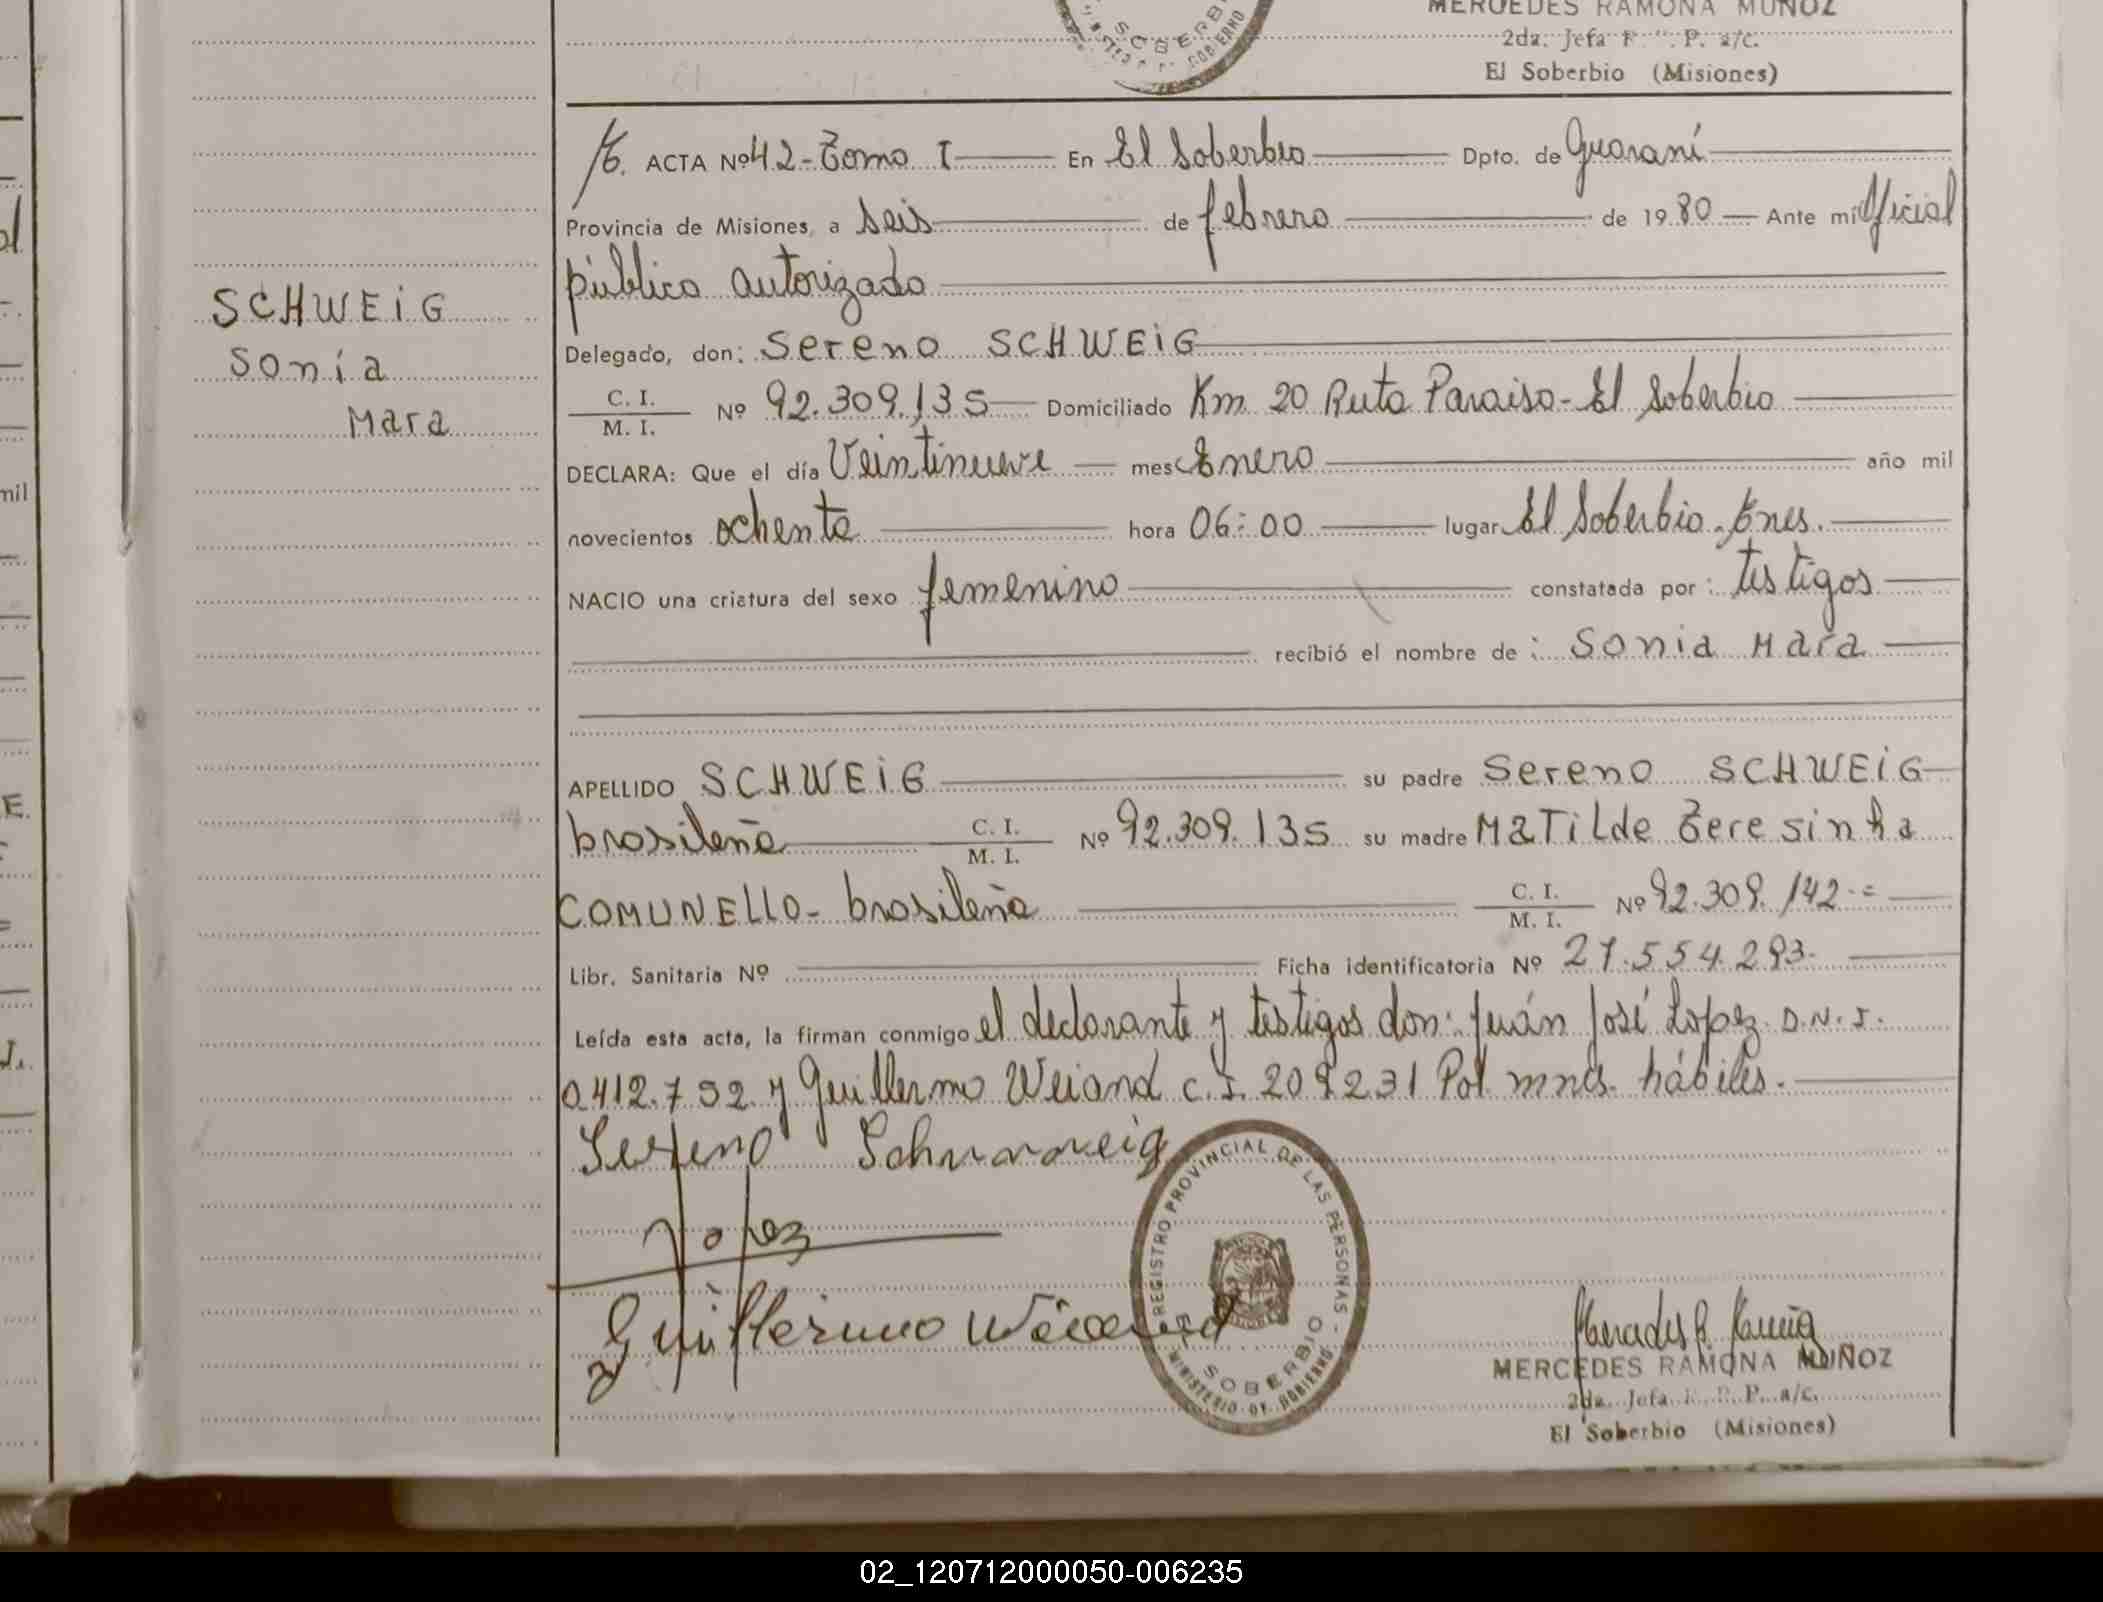 MERCEDES RAMONA MUÑOZ
2da. Jefa P. a/c.
El Soberbio (Misiones)
SOBERB
SCHWEIG
Sonia
Mara
ACTA Nº 42 - Tomo I En El Soberbio Dpto. de Guaraní
Provincia de Misiones, a seis de febrero de 1980 Ante mi Oficial
público autorizado
Delegado, don: Sereno SCHWEIG
C. I. / M. I. Nº 92.309.135 Domiciliado Km 20 Ruta Paraiso - El Soberbio
DECLARA: Que el día Veintinueve mes Enero año mil
novecientos ochenta hora 06:00 lugar El Soberbio.
NACIO una criatura del sexo femenino constatada por: testigos
recibió el nombre de: Sonia Mara
APELLIDO SCHWEIG su padre Sereno SCHWEIG
brasileña C. I. / M. I. Nº 92.309.135 su madre MaTiLde Teresinha
COMUNELLO - brasileña C. I. / M. I. Nº 92.309.142 =
Libr. Sanitaria Nº Ficha identificatoria Nº 27.554.293.
Leída esta acta, la firman conmigo el declarante y testigos don: Juán José Lopez D.N.I.
0.412.792 y Guillermo Weiand C.I. 209231 Pol. mnes. hábiles.
Sereno Schwweig
Lopez
Guillermo Weiand
REGISTRO PROVINCIAL DE LAS PERSONAS
EL SOBERBIO
MINISTERIO DE GOBIERNO
MERCEDES RAMONA MUÑOZ
2da. Jefa R. P. P. a/c.
El Soberbio (Misiones)
02_120712000050-006235